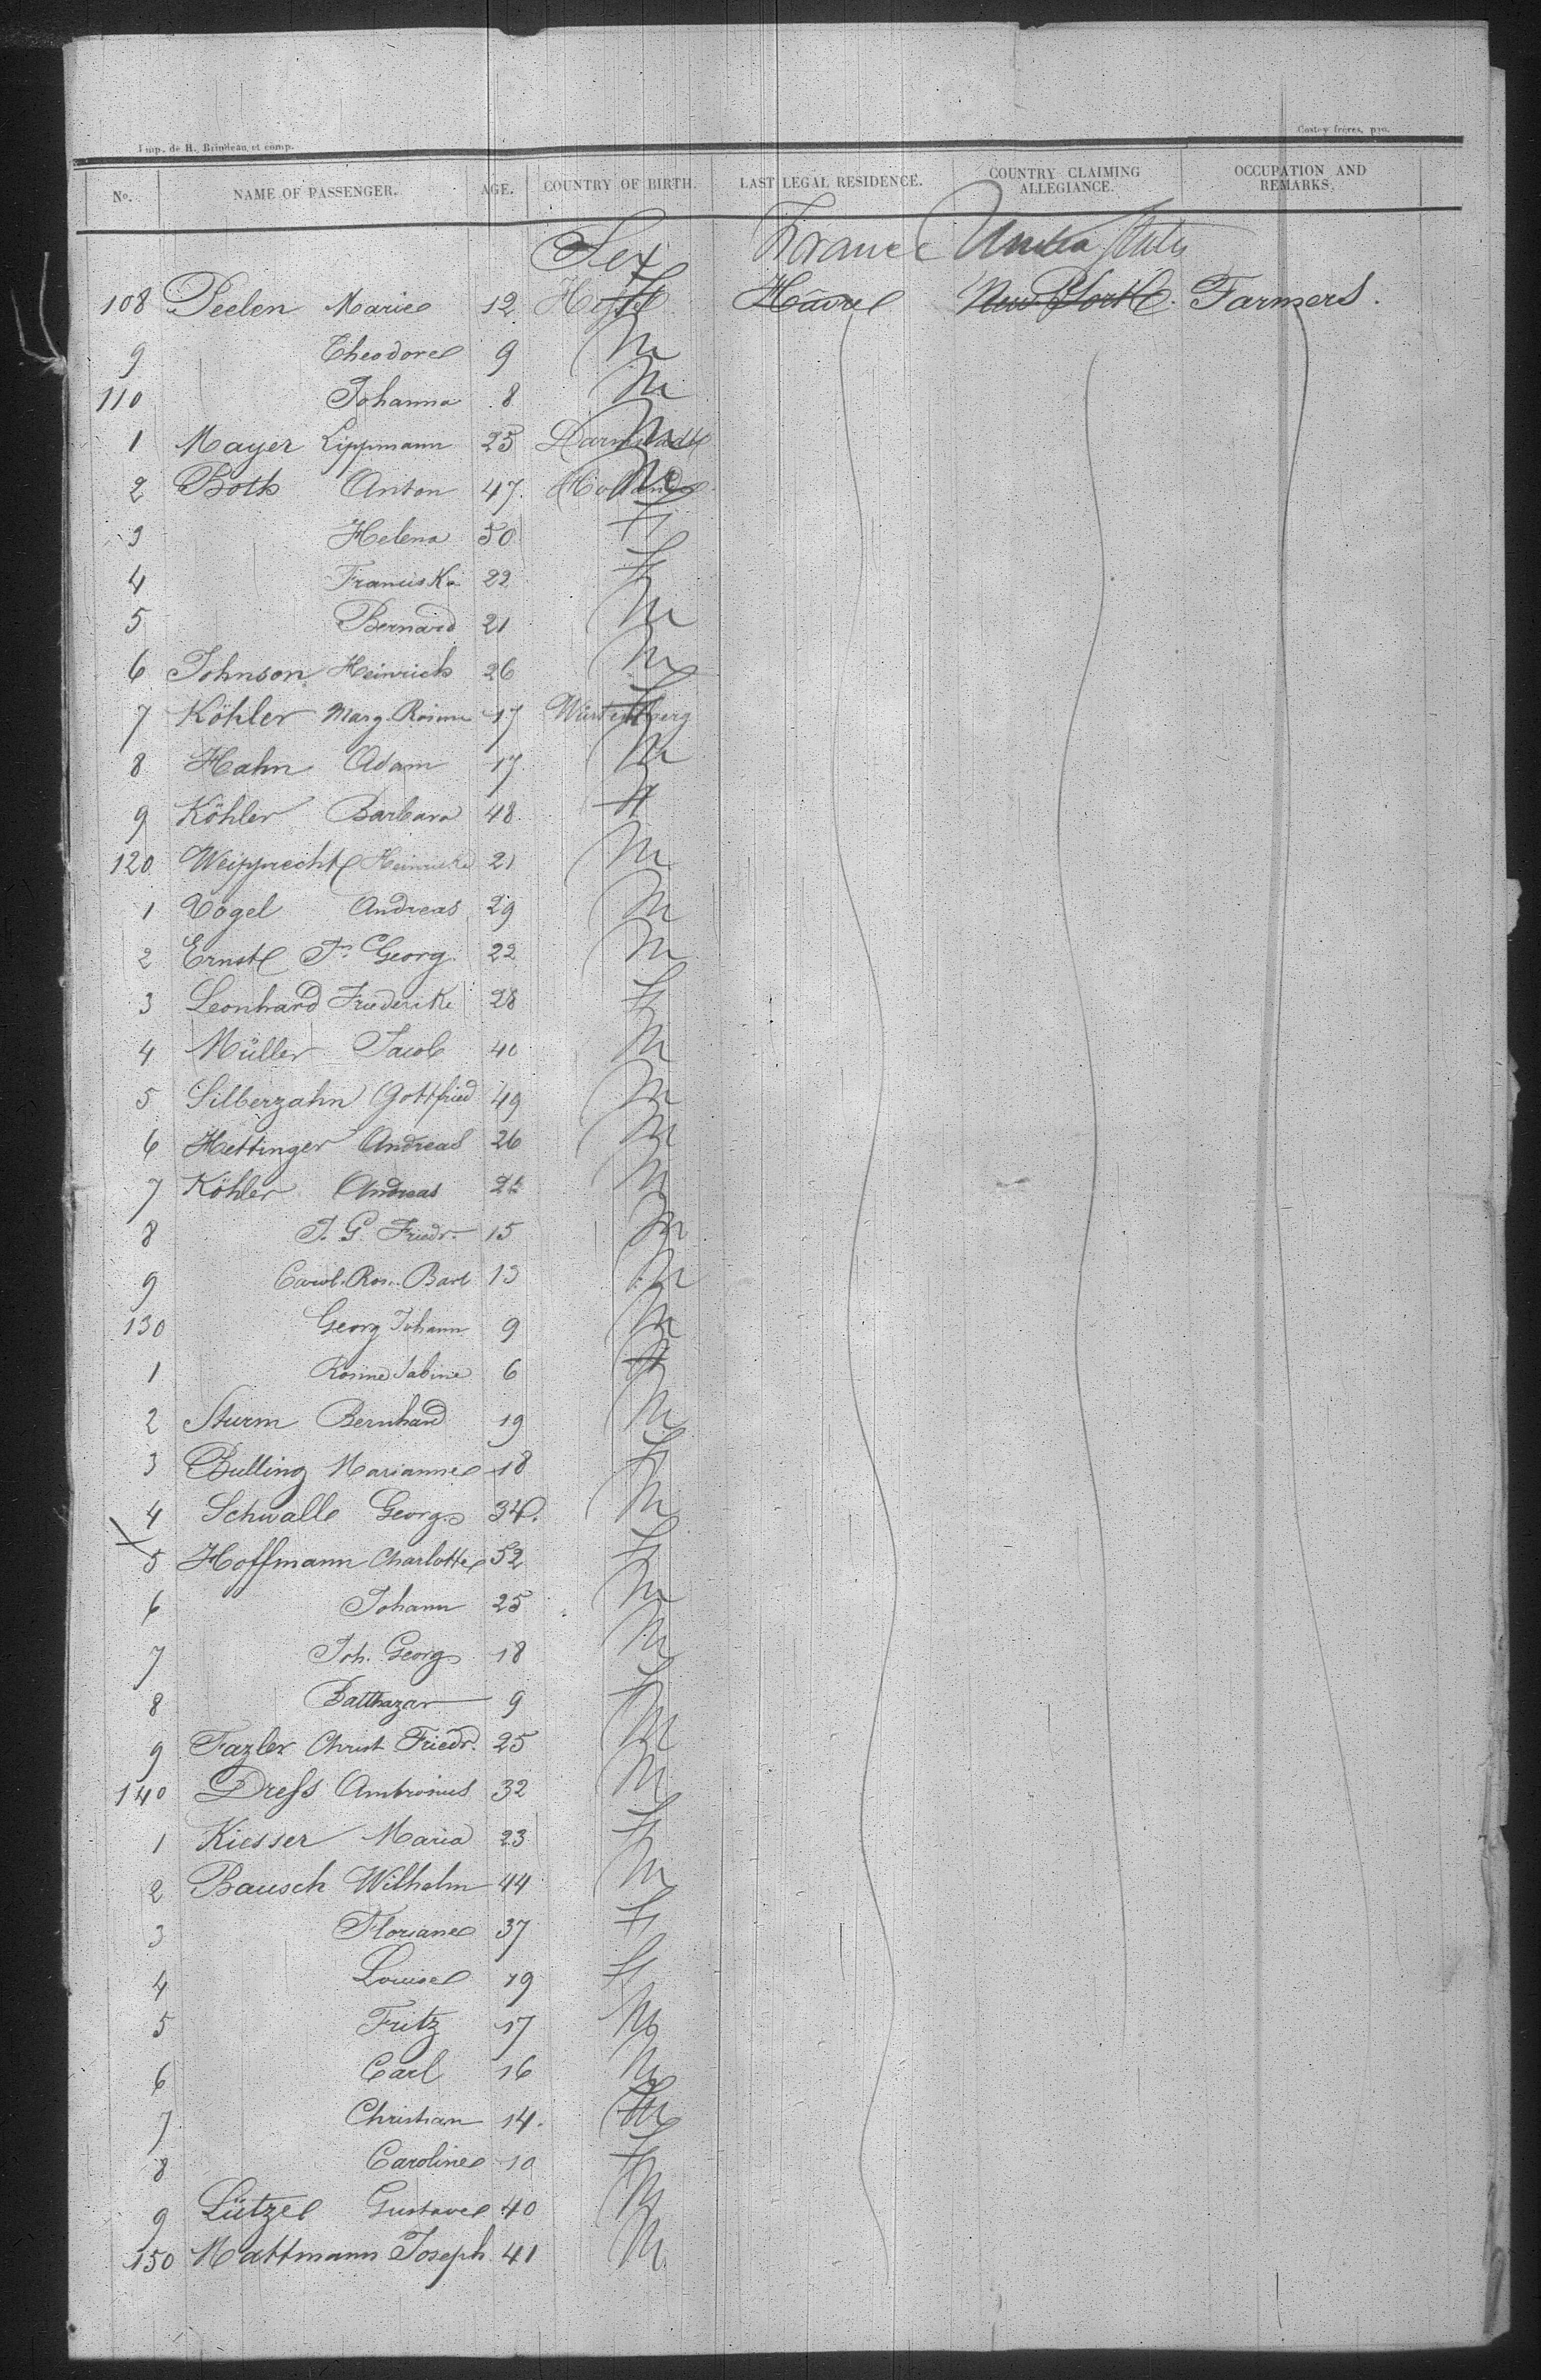 Imp. de H. Brindeau et comp. Costey frères, pro.
No. NAME OF PASSENGER. AGE. COUNTRY OF BIRTH. LAST LEGAL RESIDENCE. COUNTRY CLAIMING ALLEGIANCE. OCCUPATION AND REMARKS.
Sex France United States
108 Peelen Marie 12 F Hâvre New York Farmers.
9 Theodore 9 M
110 Johanna 8 M
1 Mayer Lippmann 25 Darmstadt M
2 Both Anton 47. Holland M
3 Helena 50 F
4 Franciska 22 F
5 Bernard 21 M
6 Johnson Heinrich 26 M
7 Köhler Marg. Rosine 17 Würtemberg F
8 Hahn Adam 17 M
9 Köhler Barbara 48 F
120 Weipprecht 21 M
1 Vogel Andreas 29 M
2 Ernst Georg 22 M
3 Leonhard Friederike 28 F
4 Müller Jacob 40 M
5 Silberzahn Gottfried 49 M
6 Hettinger Andreas 26 M
7 Köhler Andreas M
8 J. G. Friedr. 15 M
9 Carol. Ros. Barb 13 M
130 Georg Johann 9 M
1 Rosine Sabine 6 F
2 Sturm Bernhard 19 M
3 Bulling Marianne 18 F
4 Schwalle Georg 34. M
5 Hoffmann Charlotte 52 F
6 Johann 25 M
7 Joh. Georg 18 M
8 Balthazar 9 M
9 Fazler Christ Friedr. 25 M
140 Dreſs Ambrosius 32 M
1 Kiesser Maria 23 F
2 Bausch Wilhelm 44 M
3 Floriane 37 F
4 Louise 19 F
5 Fritz 17 M
6 Carl 16 M
7 Christian 14. M
8 Caroline 10 F
9 Lützel Gustave 40 M
150 Mattmann Joseph 41 M